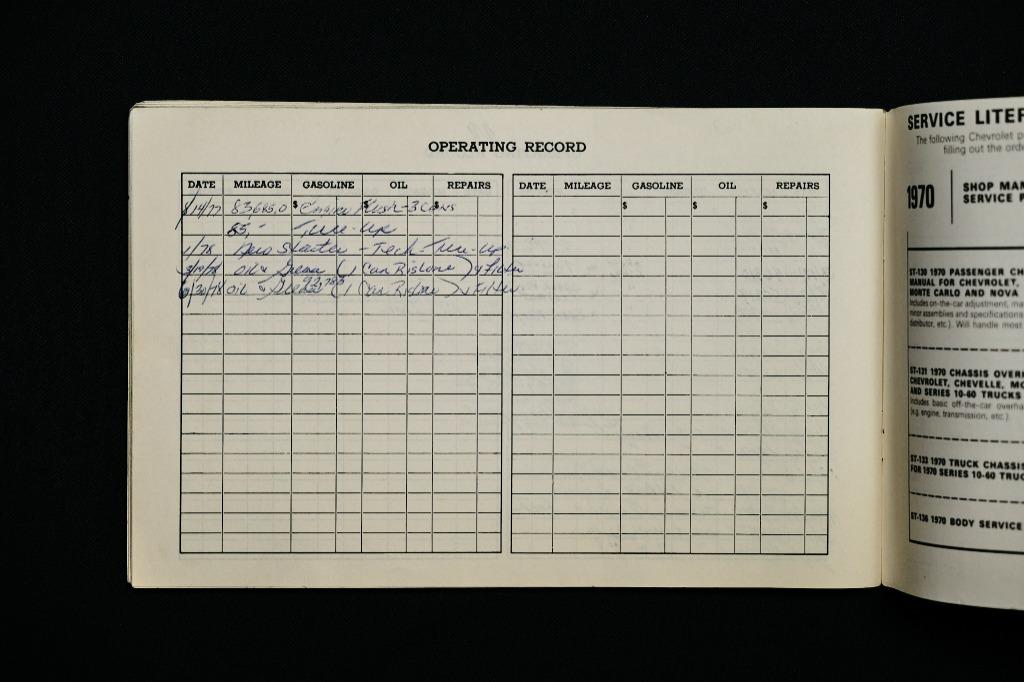 OPERATING RECORD
DATE MILEAGE GASOLINE OIL REPAIRS
DATE MILEAGE GASOLINE OIL REPAIRS
8/14/77 83685.0 $ Engine $ Flush-3 $ Cans
$ $ $
85,- Tune-Up
1/78 New Starter - Tech-Tune-Up
3/19/78 Oil & (1 Can Rislone) & Filter
/30/78 Oil & (1 Can Rislone) & Filter
SERVICE LITER
The following Chevrolet p
filling out the orde
1970
SHOP MAN
SERVICE
ST-130 1970 PASSENGER CH
MANUAL FOR CHEVROLET,
MONTE CARLO AND NOVA
Includes on-the-car adjustment, ma
minor assemblies and specifications
distributor, etc.). Will handle most
ST-131 1970 CHASSIS OVERH
CHEVROLET, CHEVELLE, MO
AND SERIES 10-60 TRUCKS
Includes basic off-the-car overha
(e.g. engine, transmission, etc.).
ST-133 1970 TRUCK CHASSIS
FOR 1970 SERIES 10-60 TRUC
ST-136 1970 BODY SERVICE